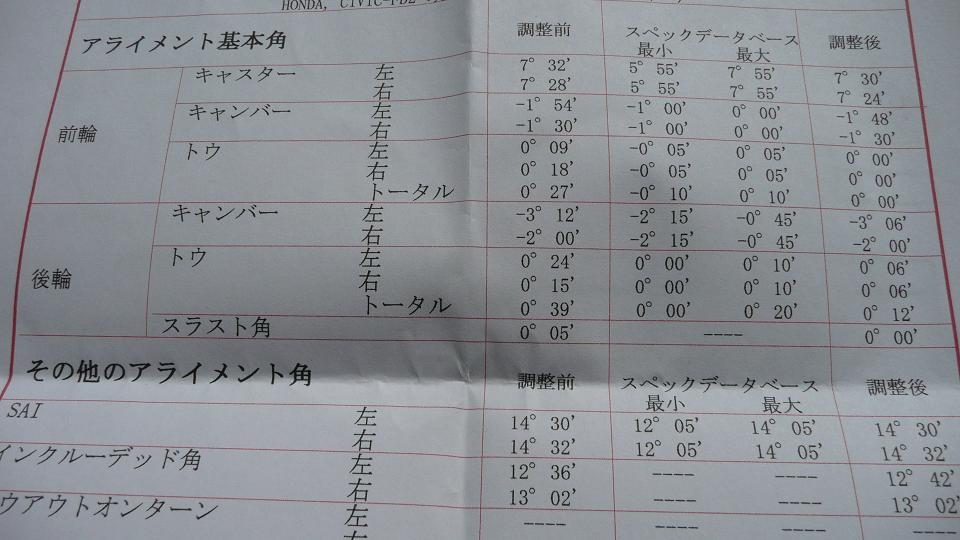 HONDA, CIVIC-FD2
アライメント基本角 調整前 スペックデータベース 調整後
最小 最大
前輪 キャスター 左 7° 32' 5° 55' 7° 55' 7° 30'
右 7° 28' 5° 55' 7° 55' 7° 24'
キャンバー 左 -1° 54' -1° 00' 0° 00' -1° 48'
右 -1° 30' -1° 00' 0° 00' -1° 30'
トウ 左 0° 09' -0° 05' 0° 05' 0° 00'
右 0° 18' -0° 05' 0° 05' 0° 00'
トータル 0° 27' -0° 10' 0° 10' 0° 00'
後輪 キャンバー 左 -3° 12' -2° 15' -0° 45' -3° 06'
右 -2° 00' -2° 15' -0° 45' -2° 00'
トウ 左 0° 24' 0° 00' 0° 10' 0° 06'
右 0° 15' 0° 00' 0° 10' 0° 06'
トータル 0° 39' 0° 00' 0° 20' 0° 12'
スラスト角 0° 05' ---- 0° 00'
その他のアライメント角 調整前 スペックデータベース 調整後
最小 最大
SAI 左 14° 30' 12° 05' 14° 05' 14° 30'
右 14° 32' 12° 05' 14° 05' 14° 32'
インクルーデッド角 左 12° 36' ---- ---- 12° 42'
右 13° 02' ---- ---- 13° 02'
ウアウトオンターン 左 ---- ---- ---- ----
右